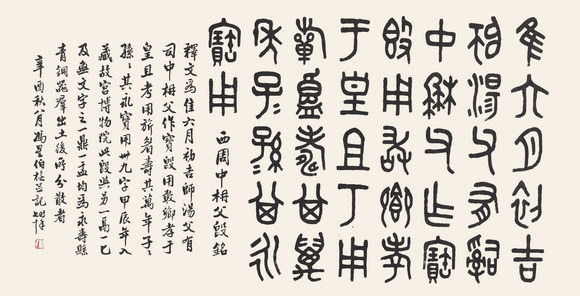 隹六月初吉
師湯父有司
中柟父乍寶
𣪘用敢卿孝
于皇且丂用
祈眉壽其萬
年子〻孫〻其永
寶用
西周中柟父𣪘銘
釋文為隹六月初吉師湯父有
司中柟父作寶𣪘用敢卿孝于
皇且考用祈眉壽其萬年子〻
孫〻其永寶用卅九字甲辰年入
藏故宮博物院此𣪘與另一鬲一匕
及無文字之一鼎一盂均為永壽縣
青銅器群出土後所分散者
辛酉秋八月馮星伯記